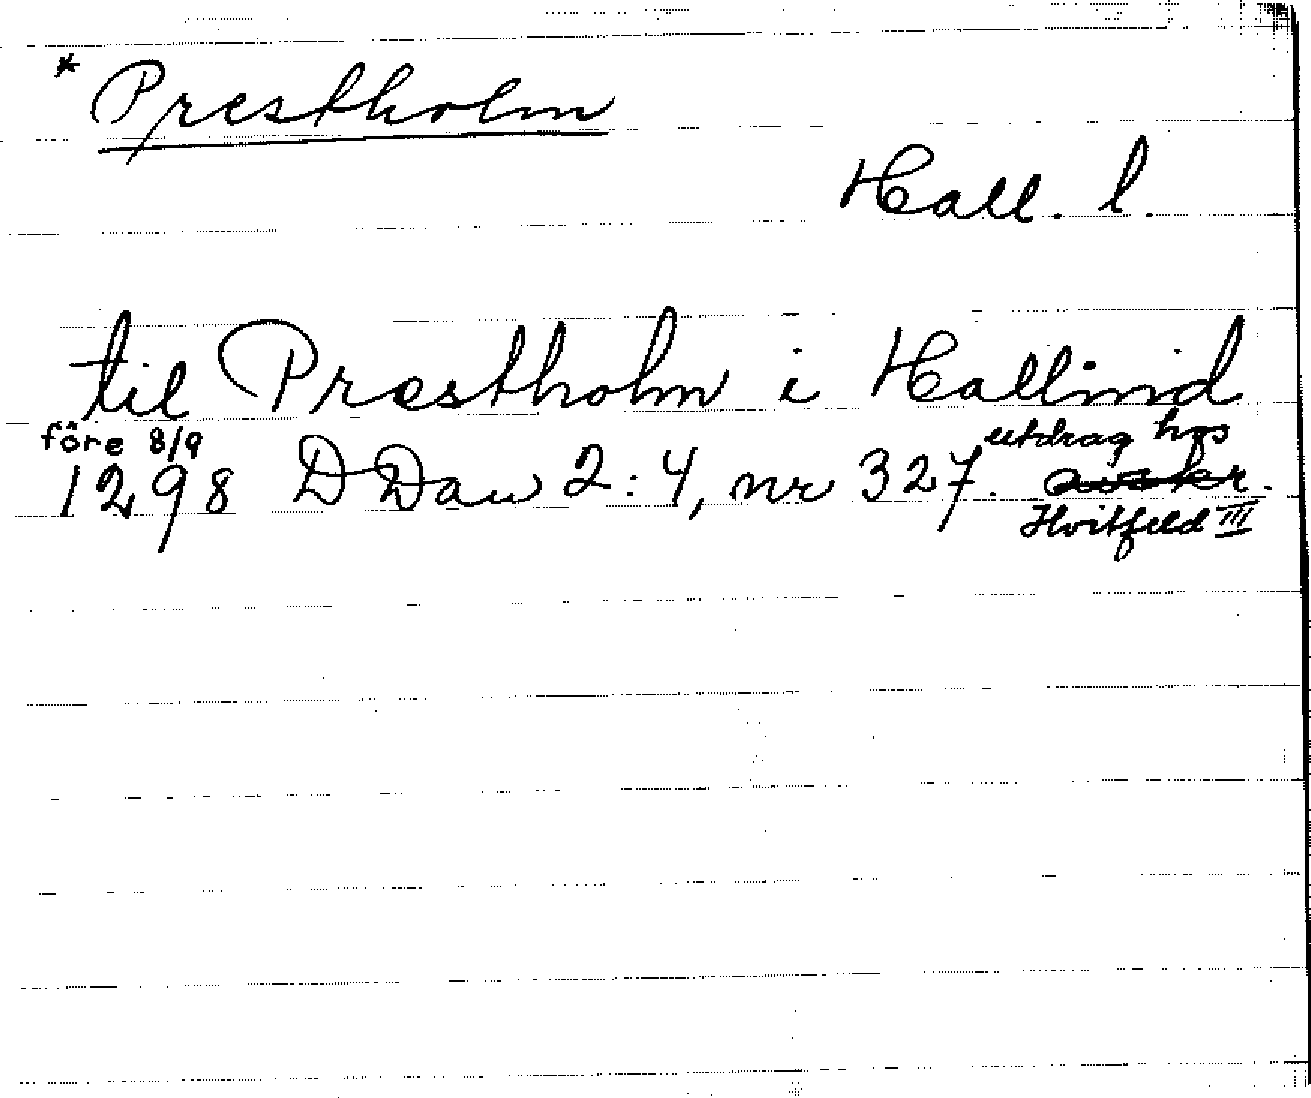 * Prestholm
Hall. l.
til Præstholm i Hallind
före 8/9 utdrag hos
1298 DDan 2:4, nr 327. avskr.
Hvitfeld III